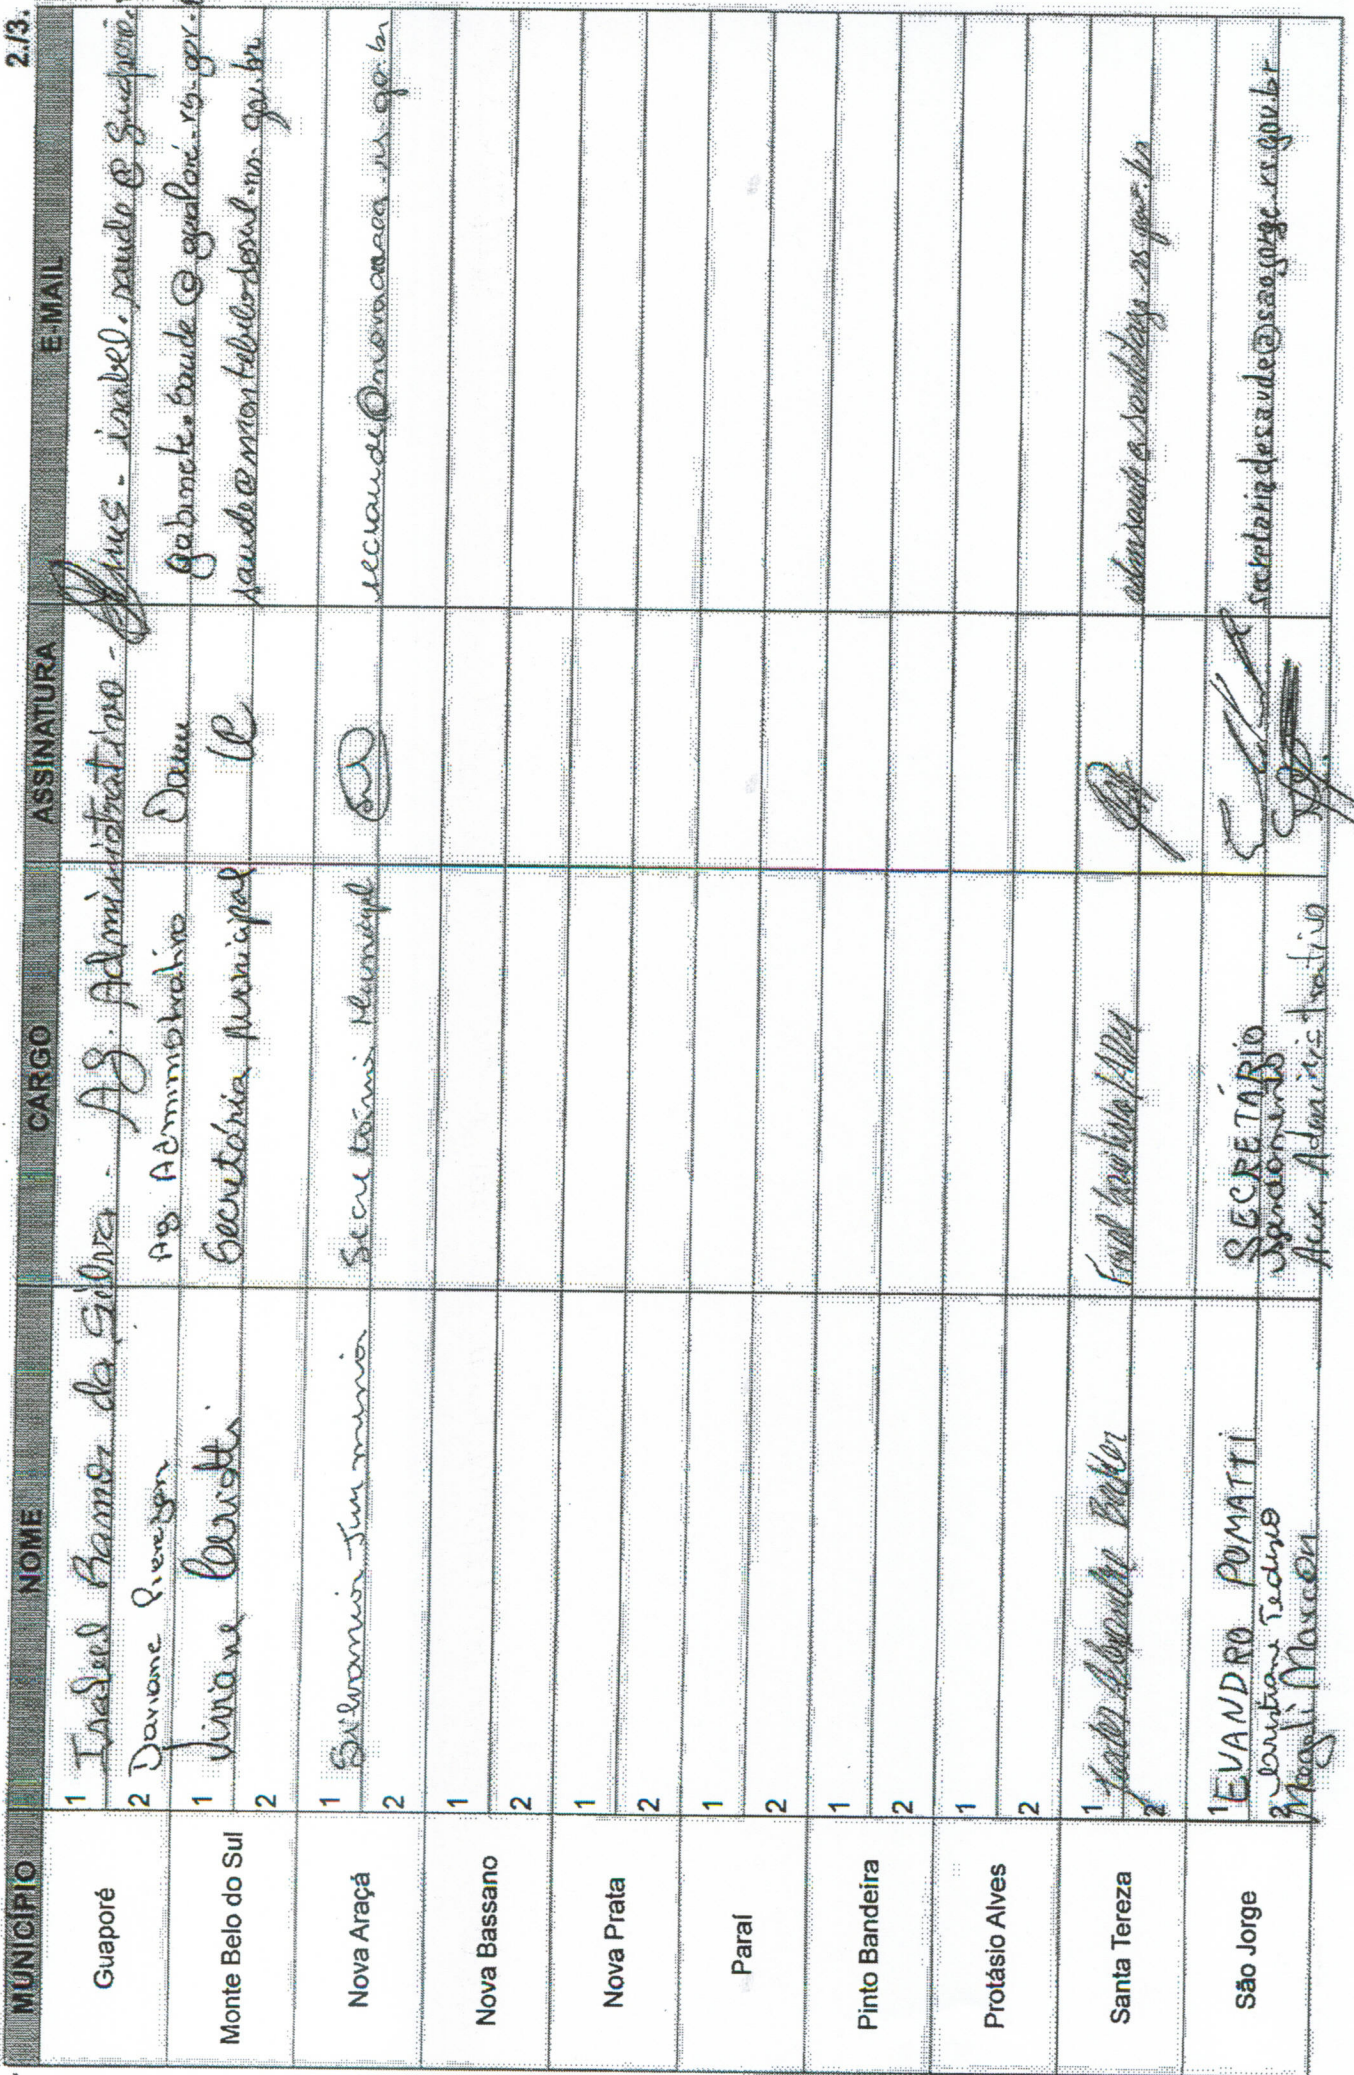 2./3.
MUNICÍPIO NOME CARGO ASSINATURA E-MAIL
Guaporé
1 Isabel Ramos da Silva - Ag. Administrativo - sms - isabel.saude@guapore.
2 Daviane Ag. Administrativo gabinete.saude@guaporé.rs.gov.
Monte Belo do Sul
1 Viviane Secretária Municipal saude@montebelodosul.rs.gov.br
2
Nova Araçá
1 Silvania Secretária Municipal secsaude@novaaraca.rs.go.br
2
Nova Bassano
1
2
Nova Prata
1
2
Paraí
1
2
Pinto Bandeira
1
2
Protásio Alves
1
2
Santa Tereza
1 Fiscal Sanitário/ADM
2
São Jorge
1 EVANDRO POMATTI SECRETÁRIO secretariadesaude@saojorge.rs.gov.br
2 Cristiane Tedesco
Magali Marcon Aux. Administrativo